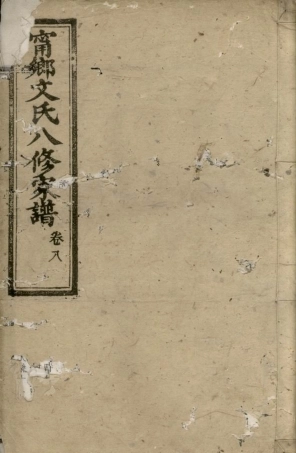 甯鄉文氏八修家譜
卷八